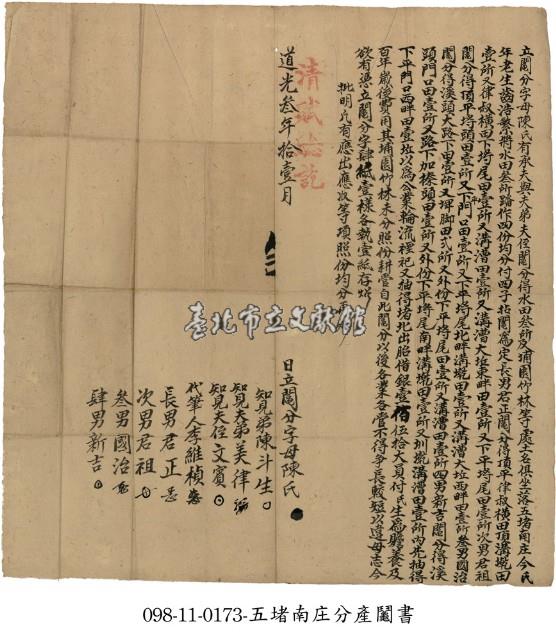 立鬮分字母陳氏有承夫與夫弟夫侄鬮分得水田叁所及埔園竹林等處土名俱坐落五堵南庄今氏
年老生齒浩繁將水田叁所踏作四份均分付四子拈鬮為定長男君正鬮分得頂平律叔橫田頂溝墘田
壹所又律叔橫田下塆尾田壹所又溝漕田壹所又溝漕大坵東畔田壹所又下平塆尾田壹所次男君祖
鬮分得頂平塆頭田壹所又下平門口田壹所又下平塆尾北畔溝墘田壹所又溝漕大坵西畔田壹所叁男國治
鬮分得溪頭大路下田壹所又埤脚田弍所又外份下平尾田壹所又溝漕田壹所四男新吉鬮分得溪
頭門口田壹所又路下加楺頭田壹所又外份下平塆尾南畔溝墘田壹所又圳 溝漕田壹所內先抽得
下平門口西畔田壹坵以為公業輪流禋祀又抽得堵北出胎借銀壹佰伍拾大員付氏生為贍養及
百年歲後費用其埔園竹林未分照份耕營自此鬮分以後各業各營不得爭長較短以違母志今
欲有憑立鬮分字肆紙壹樣各執壹紙存炤
批明凡有應出應收等項照份均分再炤
清賦驗訖
道光叁年拾壹月
日立鬮分字母陳氏
知見弟陳斗生
知見夫弟美律
知見夫侄文賓
代筆人李維楨
長男君正
次男君祖
叁男國治
肆男新吉
臺北市立文獻館
098-11-0173-五堵南庄分產鬮書